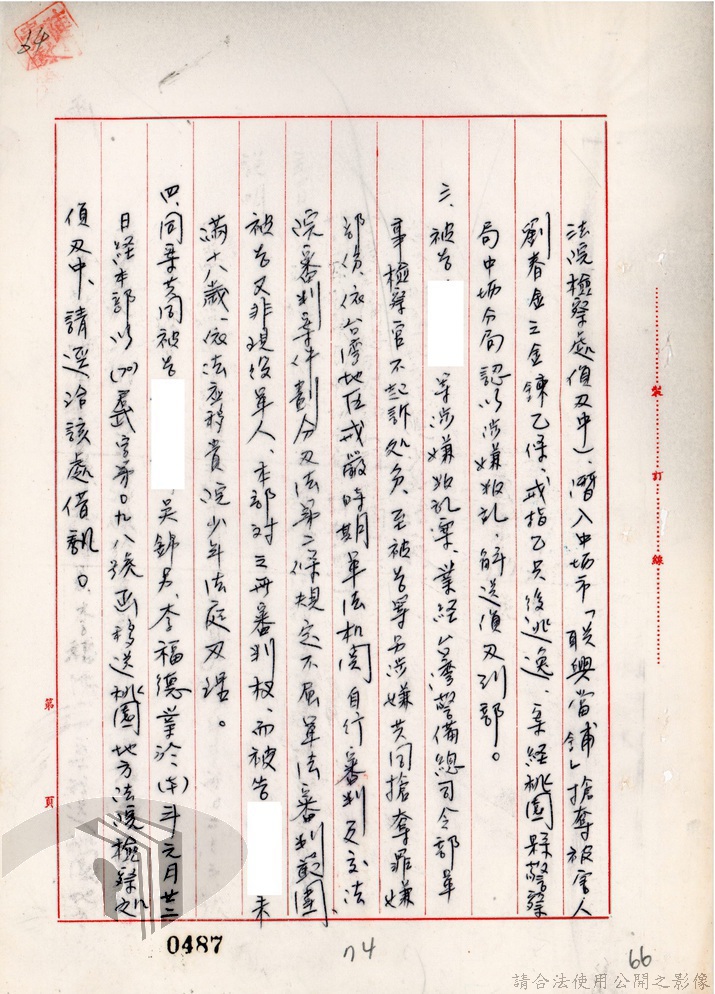 法院檢察處偵辦中）、潛入中坜市「联興當鋪」搶奪被害人
劉春金之金鍊乙條、戒指乙只後逃逸、案經桃園縣警察
局中坜分局認以涉嫌叛乱、解送偵办到部。
三、被告 等涉嫌叛乱案、業經台灣警備總司令部軍
事檢察官不起訴処分、至被告等另涉嫌共同搶奪罪嫌
部份、依台灣地区戒嚴時期軍法机関自行審判及交法
院審判案件劃分办法第二條規定不屆軍法審判範圍、
被告又非現役軍人、本部对之毋審判权、而被告 未
滿十八歲、依法应移貴院少年法庭办理。
四、同案共同被告 吳錦另、李福德業於(本)年元月廿二
日經本部以(70) 字第〇九八號函移送桃園地方法院檢察処
偵办中、請逕洽該處借訊。
裝訂線
第 頁
64
0487
74
66
請合法使用公開之影像